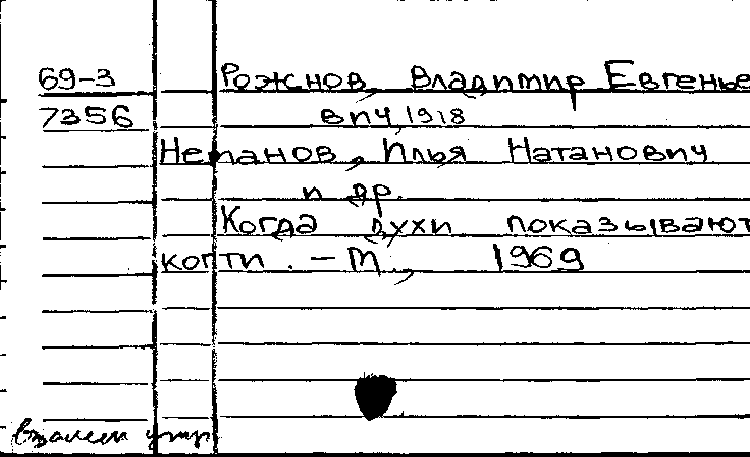 69-3 Рожнов, Владимир Евгенье
7356 вич, 1918
Непанов, Илья Натанович
и др.
Когда духи показывают
когти. - М., 1969